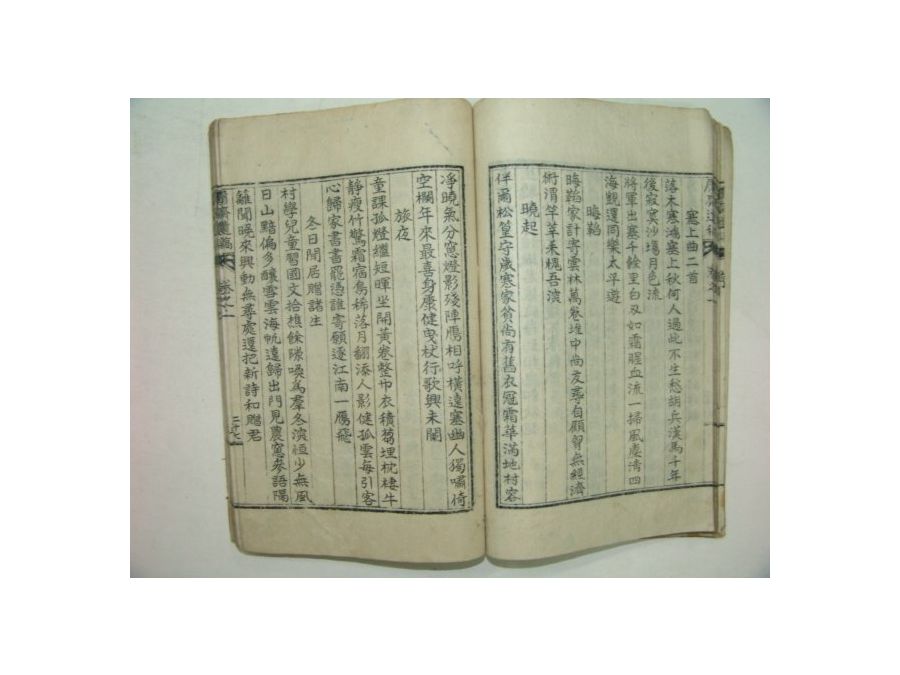 塞上曲二首
落木寒鴻塞上秋何人過此不生愁胡兵漢馬千年
後寂寞沙場月色流
將軍出塞千餘里白刃如霜腥血流一掃風塵淸四
海觀還同樂太平遊
晦韜
晦韜家計寄雲林萬卷堆中尙友尋自顧習無經濟
術渭竿莘耒槐吾深
曉起
伴爾松篁守歲寒家貧尙有舊衣冠霜華滿地村容
凈曉氣分窓燈影殘陣鴈相呼橫遠塞幽人獨嘯倚
空欄年來最喜身康健曳杖行歌興未闌
旅夜
童課孤燈繼短暉坐開黃卷整巾衣積蒭埋枕棲牛
靜瘦竹驚霜宿鳥稀落月翻添人影健孤雲每引客
心歸家書書罷憑誰寄願逐江南一鴈飛
冬日閒居贈諸生
村學兒童習國文拾樵餘隙喚爲羣冬濱恒少無風
日山黯偏多釀雪雲海帆遠歸出門見農窓夢語陽
籬聞晩來興動無尋處還把新詩和贈君
齋遺稿
卷之一